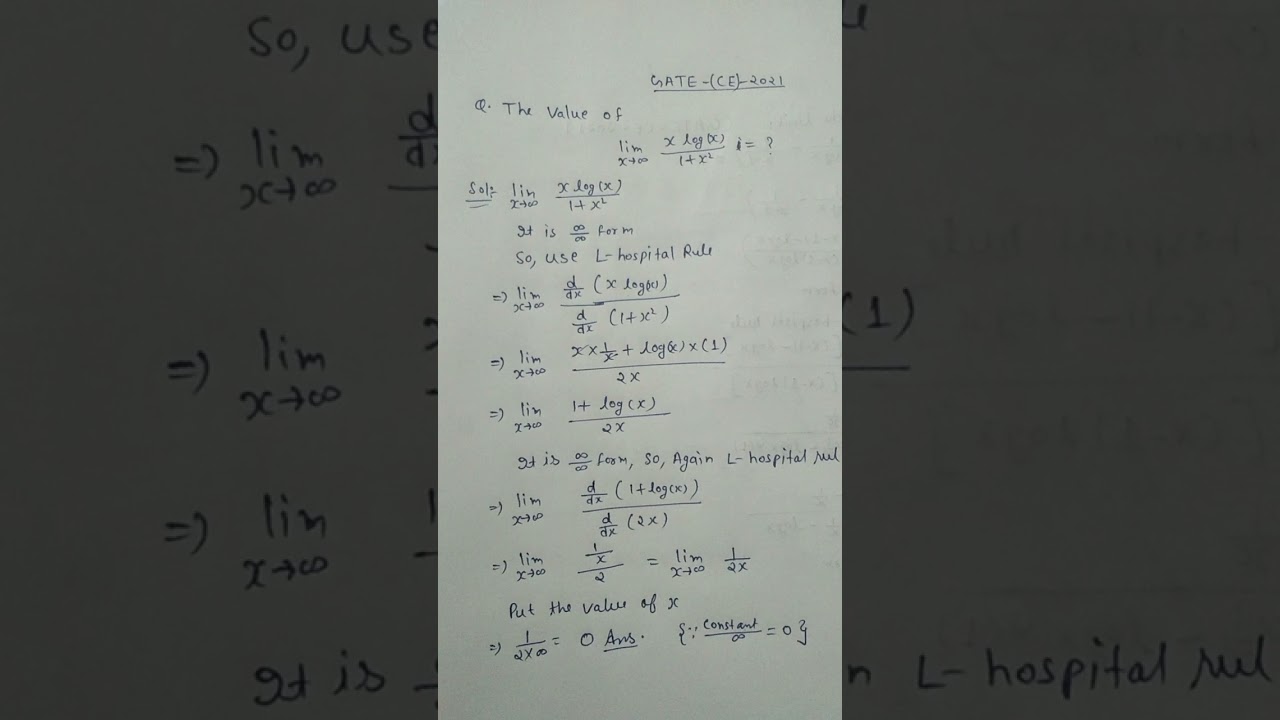 GATE-(CE)-2021
Q. The value of
lim x→∞ x log(x) / 1+x² i = ?
Sol:- lim x→∞ x log(x) / 1+x²
It is ∞/∞ form
So, use L-hospital Rule
=> lim x→∞ d/dx (x log(x)) / d/dx (1+x²)
=> lim x→∞ x × 1/x + log(x) × (1) / 2x
=> lim x→∞ 1 + log(x) / 2x
It is ∞/∞ form, So, Again L-hospital rul
=> lim x→∞ d/dx (1+log(x)) / d/dx (2x)
=> lim x→∞ 1/x / 2 = lim x→∞ 1/2x
Put the value of x
=> 1/2×∞ = 0 Ans. {∵ constant/∞ = 0}